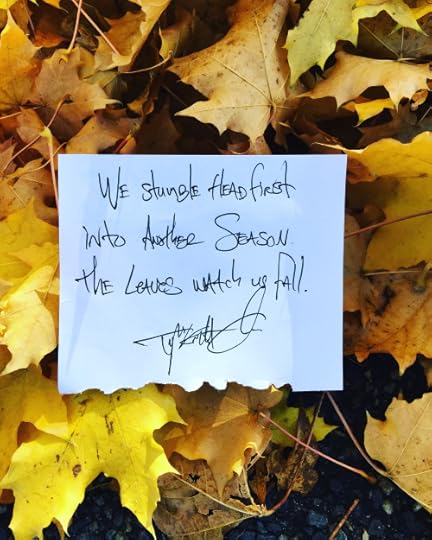 We stumble headfirst
into another Season.
the leaves watch us fall.